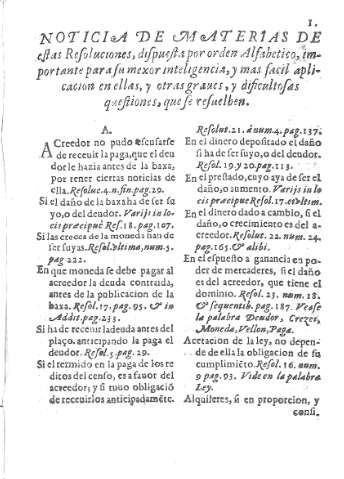 1.
NOTICIA DE MATERIAS DE
estas Resoluciones, dispuesta por orden Alfabetico, im-
portante para su mexor inteligencia, y mas facil apli-
cacion en ellas, y otras graues, y dificultosas
questiones, que se resuelben.
A.
Acreedor no pudo escusarse
de receuir la paga, que el deu
dor le hazia antes de la baxa,
por tener ciertas noticias de
ella. Resolue. 4. n. fin. pag. 29.
Si el daño de la baxa ha de ser su
yo, o del deudor. Varijs in lo-
cis præcipuè Ref. 18. pag. 107.
Si las creces de la moneda han de
ser suyas. Resol. vltima, num. 5.
pag 222.
En que moneda se debe pagar al
acreedor la deuda contraida,
antes de la publicacion de la
baxa. Resol. 17. pag. 95. & in
Addit. pag. 233.
Si ha de receuir la deuda antes del
plaço, anticipando la paga el
deudor. Resol. 5. pag. 29.
Si el termino en la paga de los re
ditos del censo, es a fauor del
acreedor; y si tubo obligació
de receuirlos anticipadamēte.
Resolut. 21. à num. 4. pag. 137.
En el dinero depositado el daño
si ha de ser suyo, o del deudor.
Resol. 19. y 20. pag. 113.
En el prestado, cuyo aya de ser el
daño, o aumento. Varijs in lo
cis præcipue Resol. 17. & vltim.
En el dinero dado a cambio, si el
daño, o crecimiento es del a-
creedor. Resolut. 22. num. 24.
pag. 165. & alibi.
En el espuesto a ganancia en po-
der de mercaderes, si el daño
es del acreedor, que tiene el
dominio. Resol. 23. num. 18.
& sequentib. pag. 187. Vease
la palabra Deudor, Crezes,
Moneda, Vellon, Paga.
Acetacion de la ley, no depen-
de de ella la obligacion de su
cumplimiēto. Resol. 16. num.
9 pag. 93. Vide en la palabra
Ley.
Alquileres, si en proporcion, y
consi.